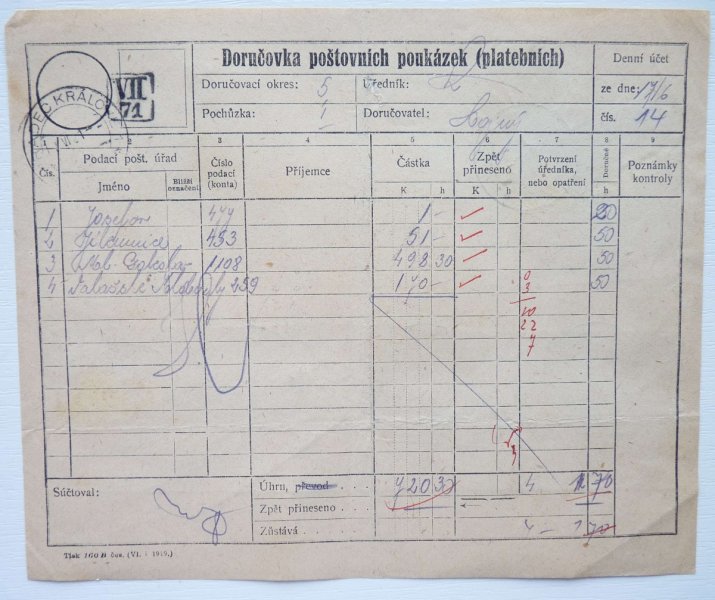 Doručovka poštovních poukázek (platebních)
Denní účet
VII
71
DEC KRÁLO
Doručovací okres: 5
Úředník:
ze dne: 17/6
Pochůzka: 1
Doručovatel:
čís. 14
2 3 4 5 6 7 8 9
Čís.
Podací pošt. úřad
Jméno
Bližší označení
Číslo podací (konta)
Příjemce
Částka
K h
Zpět přineseno
K h
Potvrzení úředníka, nebo opatření
Doručné
h
Poznámky kontroly
1 477 1 - 20
2 453 51 - 50
3 1108 498 30 50
4 459 170 - 50
0
3
10
22
7
3
Súčtoval:
Úhrn, převod . . . . 720 30 4 1 70
Zpět přineseno . . .
Zůstává . . . . 4 - 1 70
Tisk 160 B čsn. (VI. - 1919.)